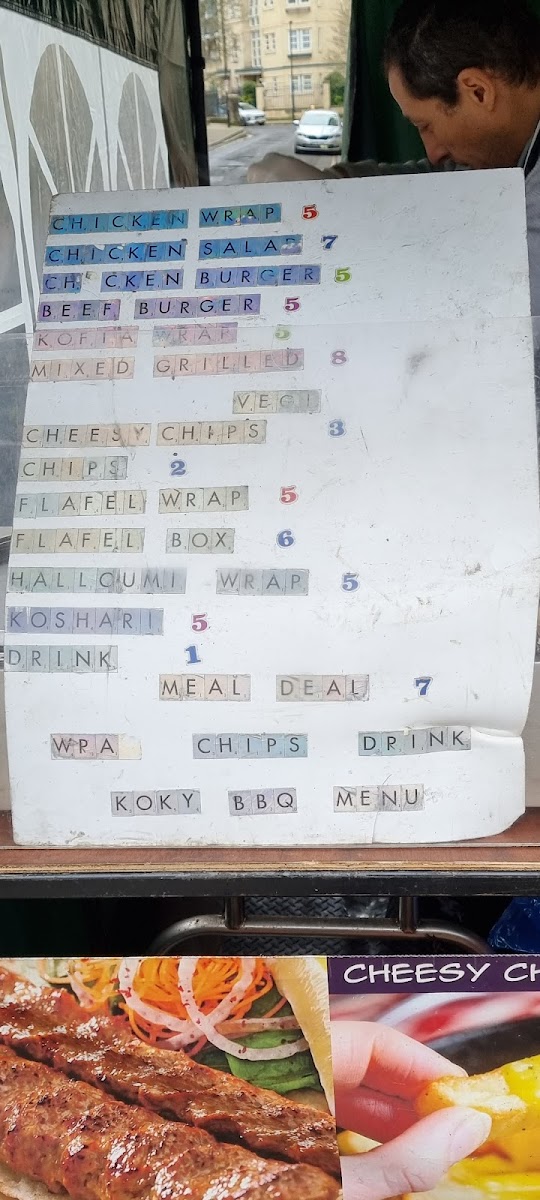 CHICKEN WRAP 5
CHICKEN SALA 7
CH CKEN BURGER 5
BEEF BURGER 5
KOFTA WRAP 5
MIXED GRILLED 8
VEGI
CHEESY CHIPS 3
CHIPS 2
FLAFEL WRAP 5
FLAFEL BOX 6
HALLOUMI WRAP 5
KOSHARI 5
DRINK 1
MEAL DEAL 7
WRA CHIPS DRINK
KOKY BBQ MENU
CHEESY CH